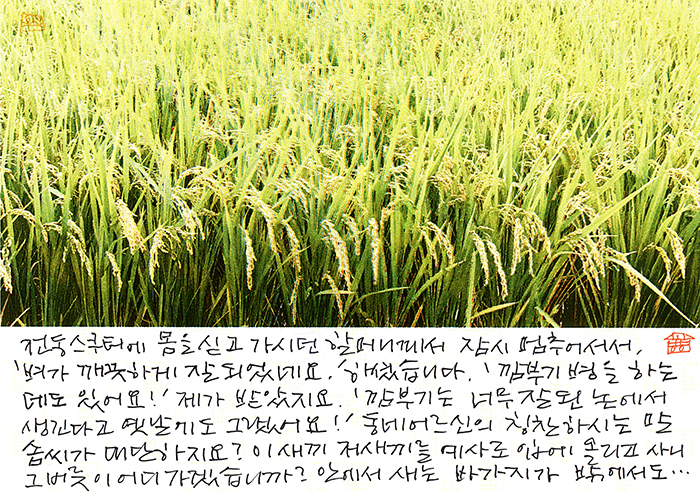 전동스쿠터에 몸을 싣고 가시던 할머니께서 잠시 멈추어서서,
'벼가 깨끗하게 잘 되었네요. 하셨습니다. '깜부기 병을 하는
데도 있어요!' 제가 받았지요. '깜부기는 너무 잘된 논에서
생긴다고 옛날에도 그랬어요!' 동네어르신의 칭찬하시는 말
솜씨가 대단하지요? 이새끼 저새끼를 예사로 입에 올리고 사니
그버릇이 어디 가겠습니까? 안에서 새는 바가지가 밖에서도...